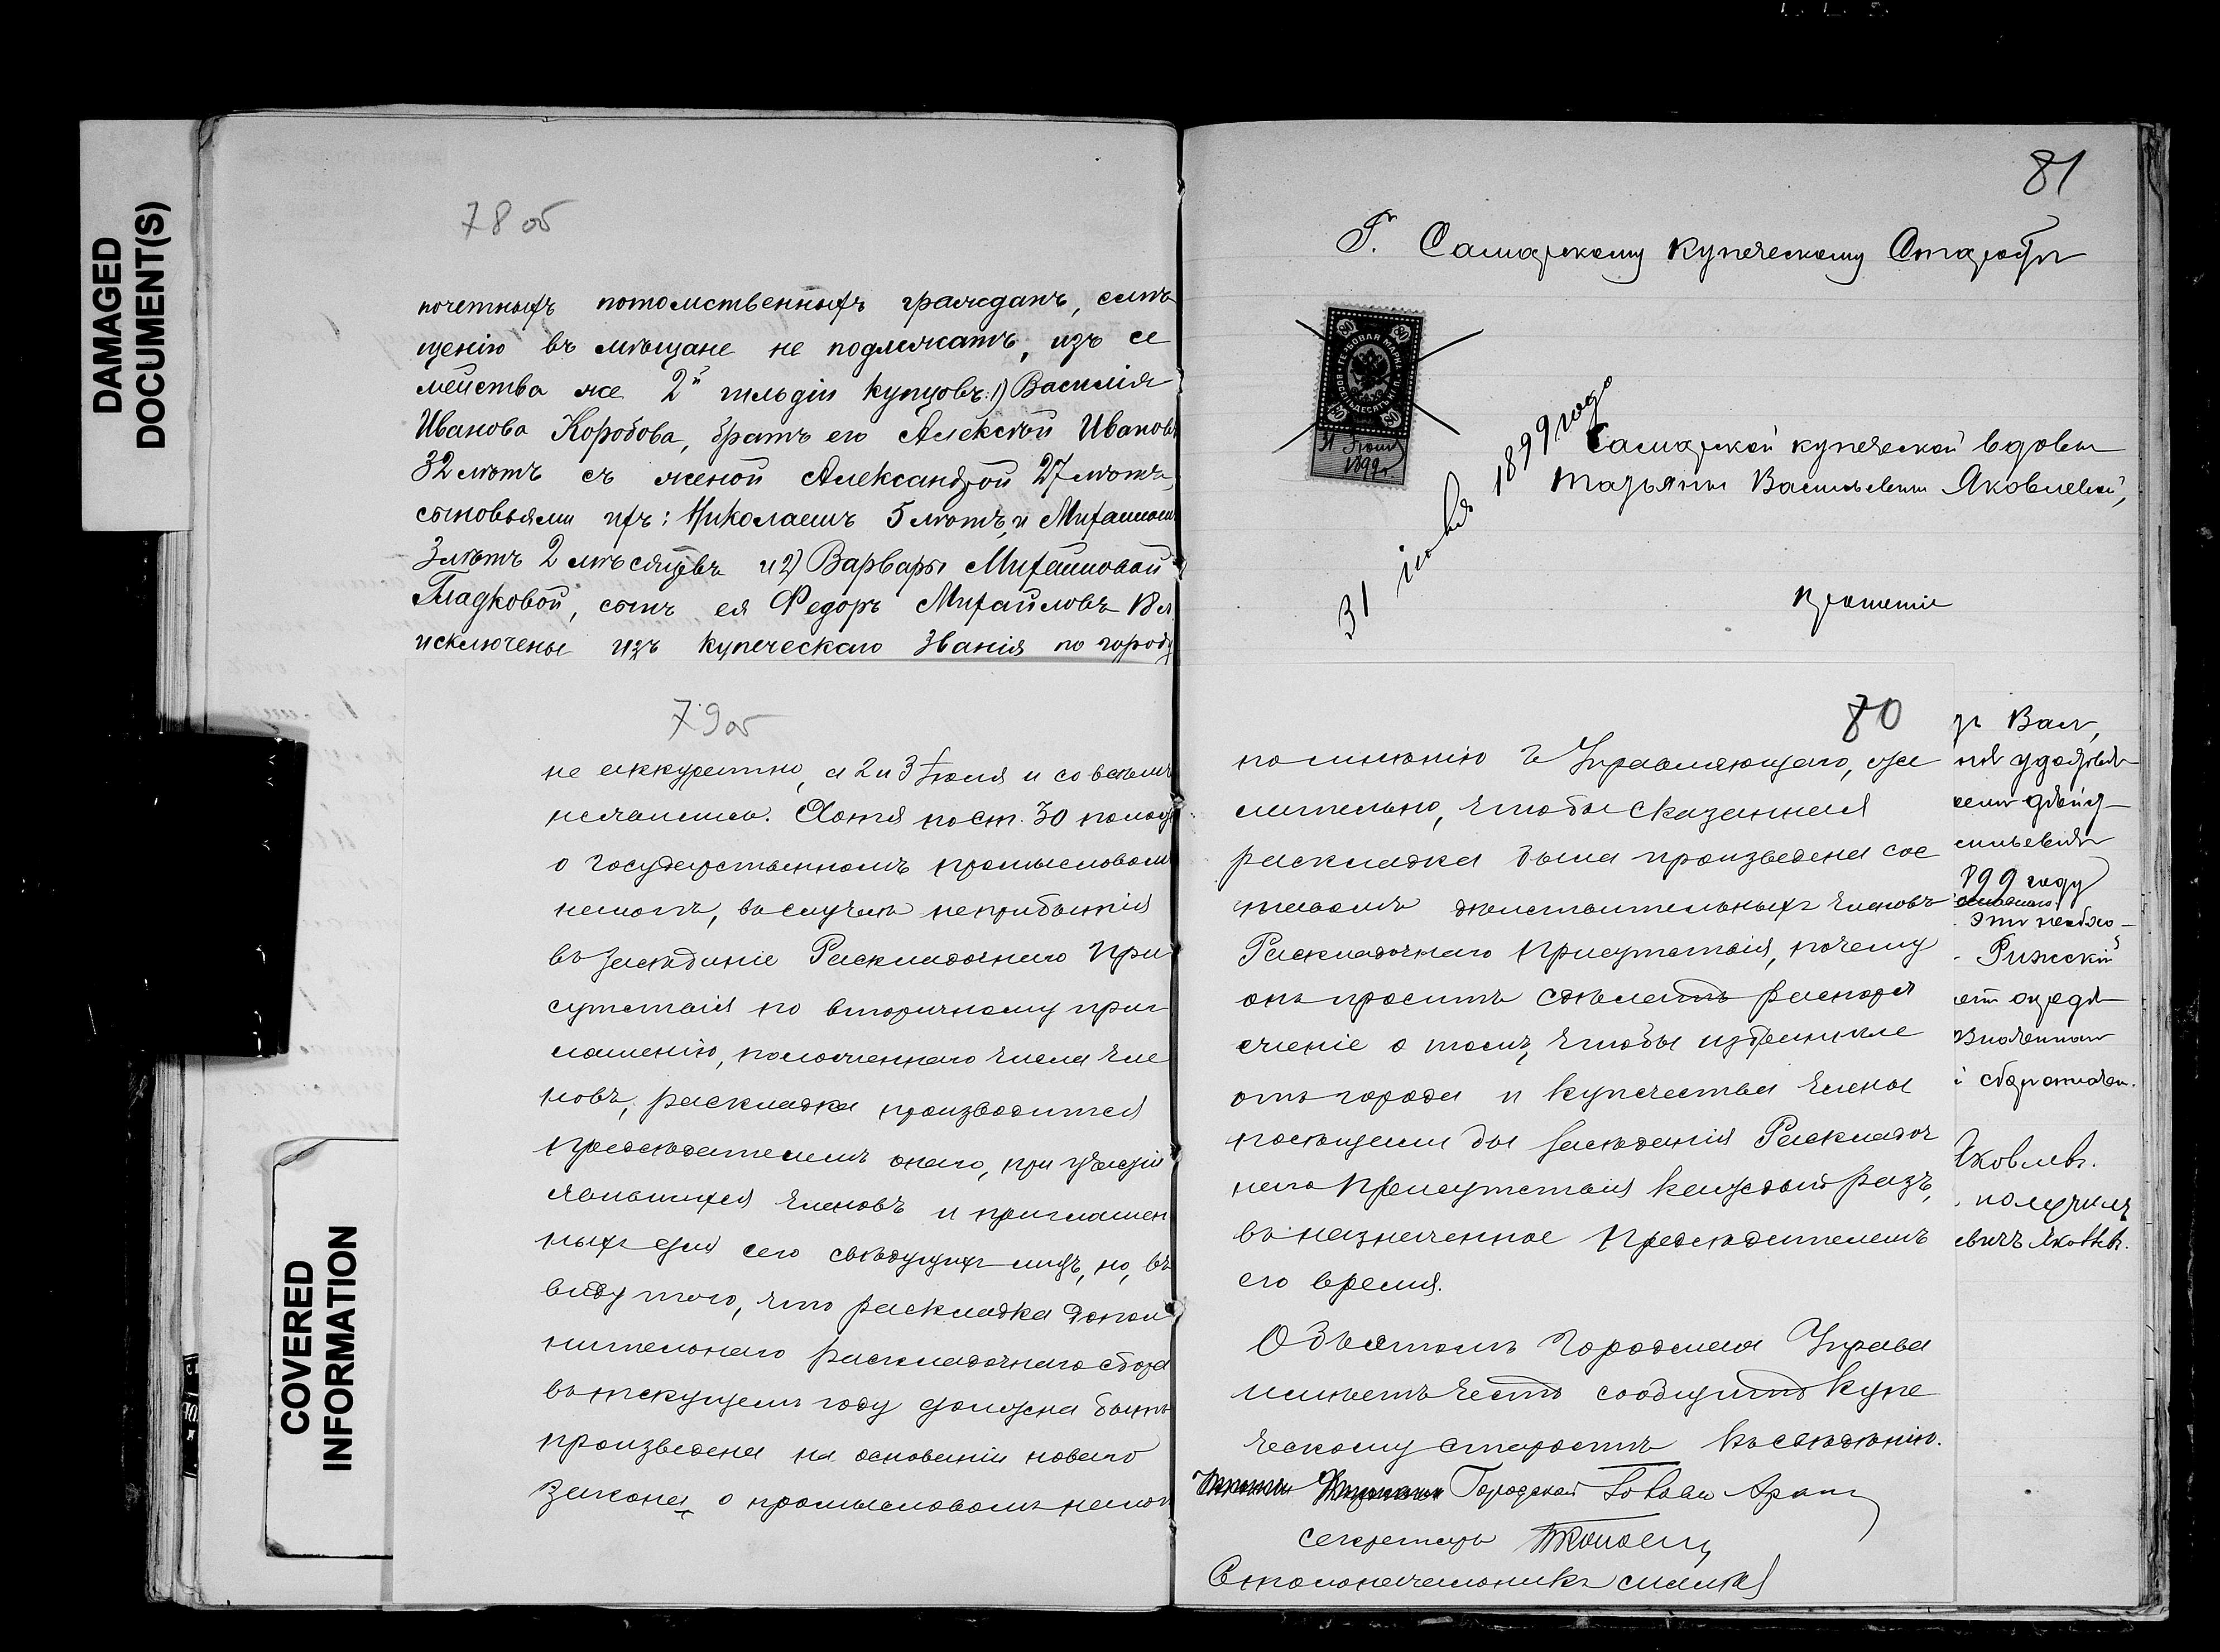 DAMAGED
DOCUMENT(S)
78 об
почетныхъ потомственныхъ гражданъ,
щенію въ мѣщане не подлежатъ, изъ се
мейства же 2й гильдіи купцовъ: 1) Василія
Иванова Коробова, братъ его Алексѣй Ивановъ
32 лѣтъ съ женой Александрой 27 лѣтъ,
сыновьями ихъ: Николаемъ 5 лѣтъ, и Михаиломъ
3 лѣтъ 2 мѣсяцевъ и 2) Варвары Михайловой
Гладковой, сынъ ея Федоръ Михайловъ 18 л.
исключены изъ купеческаго званія по городу
79 об
не аккуратно, а 2 и 3 Іюля и со всѣмъ
не явились. Хотя по ст. 30 полож
о государственномъ промысловом
налогѣ, въ случаѣ неприбытія
въ засѣданіе Раскладочнаго При
сутствія по вторичному приг
лашенію, положеннаго числа чле
новъ, раскладка производится
предсѣдателемъ онаго, при участіи
явившихся членовъ и приглашен
ныхъ для сего свѣдущихъ лицъ, но, въ
виду того, что раскладка допол
нительнаго раскладочнаго сбора
въ текущемъ году должна быть
произведена на основаніи новаго
Закона о промысловомъ налог
COVERED
INFORMATION
81
Г. Самарскому Купеческому Старостѣ
ГЕРБОВАЯ МАРКА
ВОСЕМЬДЕСЯТЪ КОП.
80
31 Іюля
1899 г
31 іюля 1899 года
Самарской купеческой вдовы
Татьяны Васильевны Яковлевой,
Прошеніе
80
по мнѣнію г Управляющаго, же
лательно, чтобы сказанная
раскладка была произведена сос
тавомъ дѣйствительныхъ членовъ
Раскладочнаго Присутствія, почему
онъ проситъ сдѣлать распоря
женіе о томъ, чтобы избранные
отъ города и купечества члены
посѣщали бы засѣданія Раскладоч
наго Присутствія каждый разъ,
въ назначенное Предсѣдателемъ
его время.
Объ этомъ Городская Управа
имѣетъ честь сообщить Купе
ческому старостѣ къ свѣдѣнію.
Городской Голова
секретарь
Столоначальникъ
Вам
удостовѣ
199 году
Рижскій
опредѣ
Яковлевъ.
получилъ
евичъ Яковлевъ.